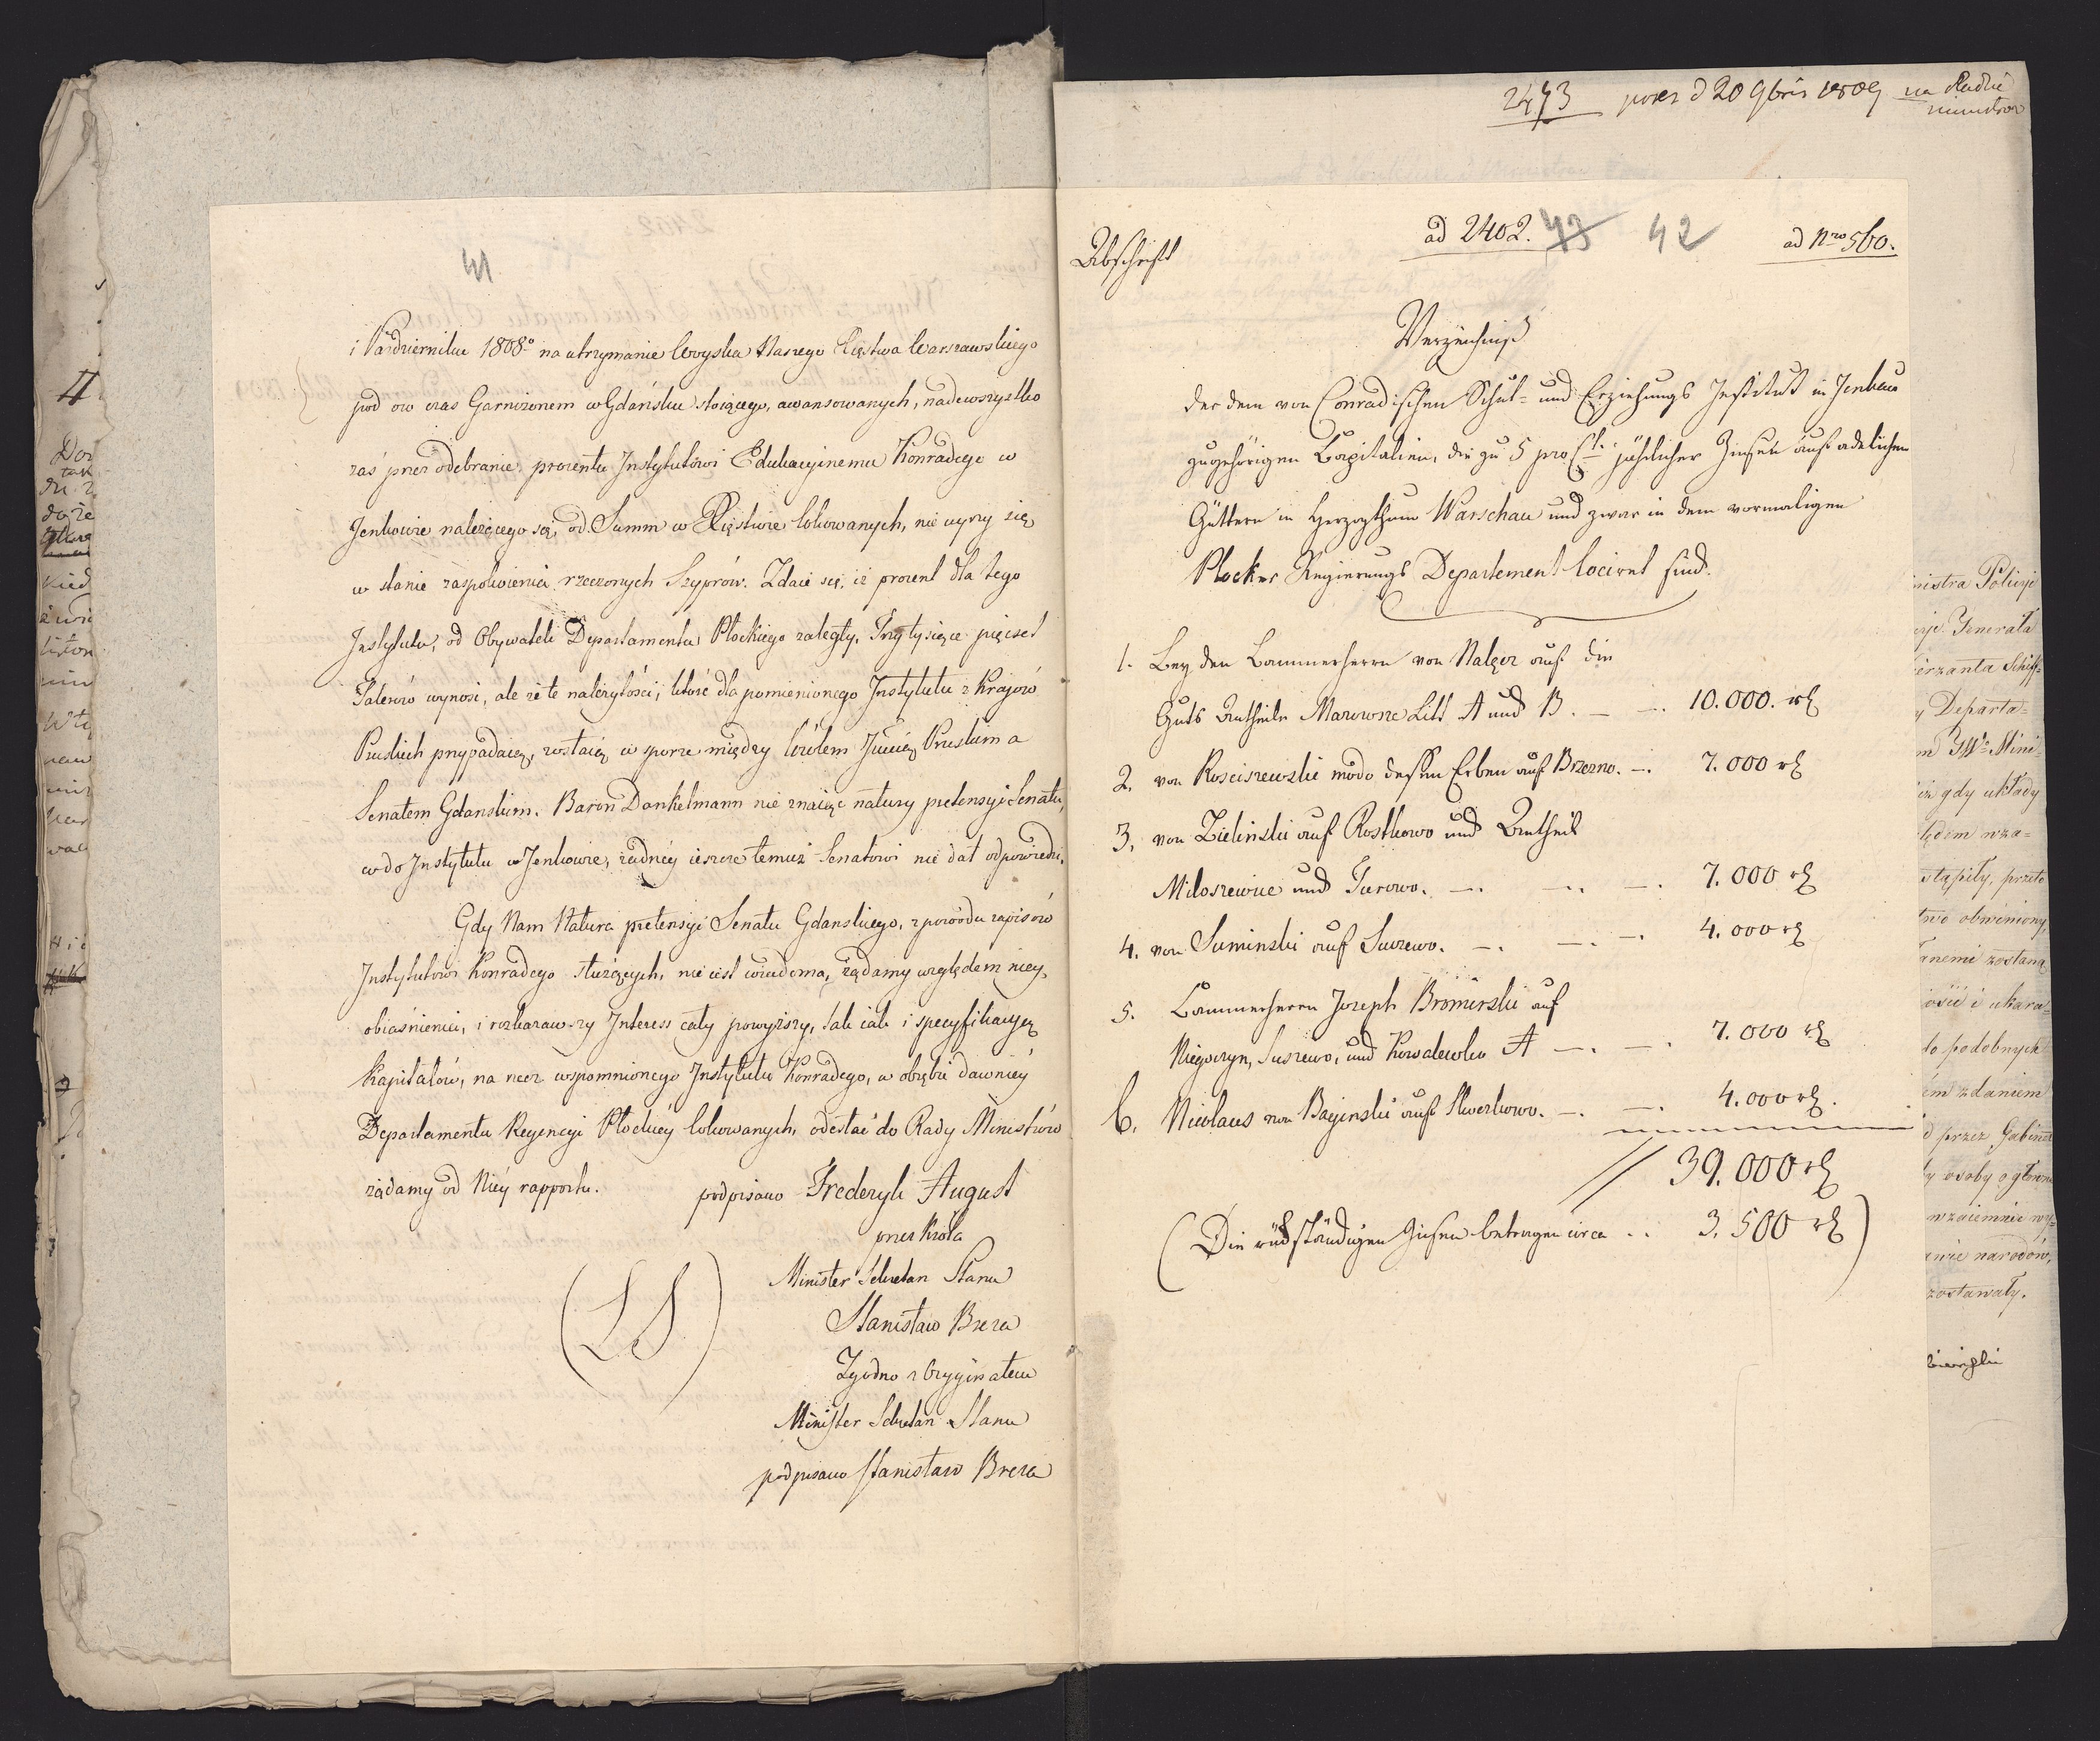 41
i Pazdzierniku 1808º na utrzymanie Woyska Naszego Xięstwa Warszawskiego
pod ow czas Garnizonem w Gdańsku stoiącego, awansowanych, nadewszystko
zaś przez odebranie procentu Instytutowi Edukacyinemu Konradego w
Jenkowie należącego się, od Summ w Xięstwie lokowanych, nie uyrzy się
w stanie zaspokoienia rzeczonych Szyprów. Zdaie się, iż procent dla tego
Instytutu, od Obywateli Departamentu Płockiego zaległy, Trzy tysiące pięcset
Talerów wynosi, ale że te należytości, ktore dla pomienionego Instytutu z Kraiów
Pruskich przypadaią, zostaią w sporze między Królem Jmcią Pruskim a
Senatem Gdanskim. Baron Dankelmann nie znaiąc natury pretensyi Senatu,
co do Instytutu w Jenkowie, żadnéy ieszcze temuż Senatowi nie dał odpowiedzi.
Gdy Nam Natura pretensyi Senatu Gdanskiego, z powodu zapisów
Instytutowi Konradego służących, nie iest wiadoma, żądamy względem niey,
obiaśnienia, i rozkazawszy Interess cały powyższy, tak iak i specyfikacyę
Kapitałów, na rzecz wspomnionego Instytutu Konradego, w obrębie dawniéy
Departamentu Regencyi Płockiéy lokowanych, odesłać do Rady Ministrów
żądamy od Niéy rapportu. podpisano Frederyk August
przez Króla
Minister Sekretarz Stanu
(LS) Stanisław Breza
Zgodno z Oryginałem
Minister Sekretarz Stanu
podpisano Stanisław Breza
2473 prces d 20 9bris 1809 na Radzie
ministrow
Abschrift
ad 2402. 43 42 ad Nro 560.
Verzeichniß
der dem von Conradischen Schul- und Erziehungs Institut in Jenkau
zugehörigen Capitalien, die zu 5 pro Ct. jährlicher Zinsen auf adelichen
Güttern in Herzogthum Warschau und zwar in dem vormaligen
Plocker Regierungs Departement locirt sind.
1. Bey den Cammerherrn von Nałęcz auf die
Guts Antheile Marowze Litt A und B. — —. 10.000. rℓ
2. von Kosciszewski modo dessen Erben auf Brzezno. —. 7.000 rℓ
3. von Zielinski auf Rostkowo und Antheil
Miloszewice und Turowo. —. —. —. 7.000 rℓ
4. von Suminski auf Suszewo. —. —. —. 4.000 rℓ
5. Cammerherrn Joseph Bromirski auf
Niegoczyn, Suszewo, und Kowalewko A —. —. 7.000 rℓ
6. Nicolaus von Bagienski auf Skwerkowo. —. —. 4.000 rℓ.
// 39.000 rℓ
(Die rückständigen Zinsen betragen circa .. 3.500 rℓ)
nistra Policyi
Generała
Schiff-
Departa-
JWo Mini-
gdy układy
nza-
stąpiły, przeto
obwiniony,
zostaną
i ukara-
do podobnych
zdaniem
przez Gabinet
osoby o głowne
wzaiemnie wy-
narodów,
zostawały.